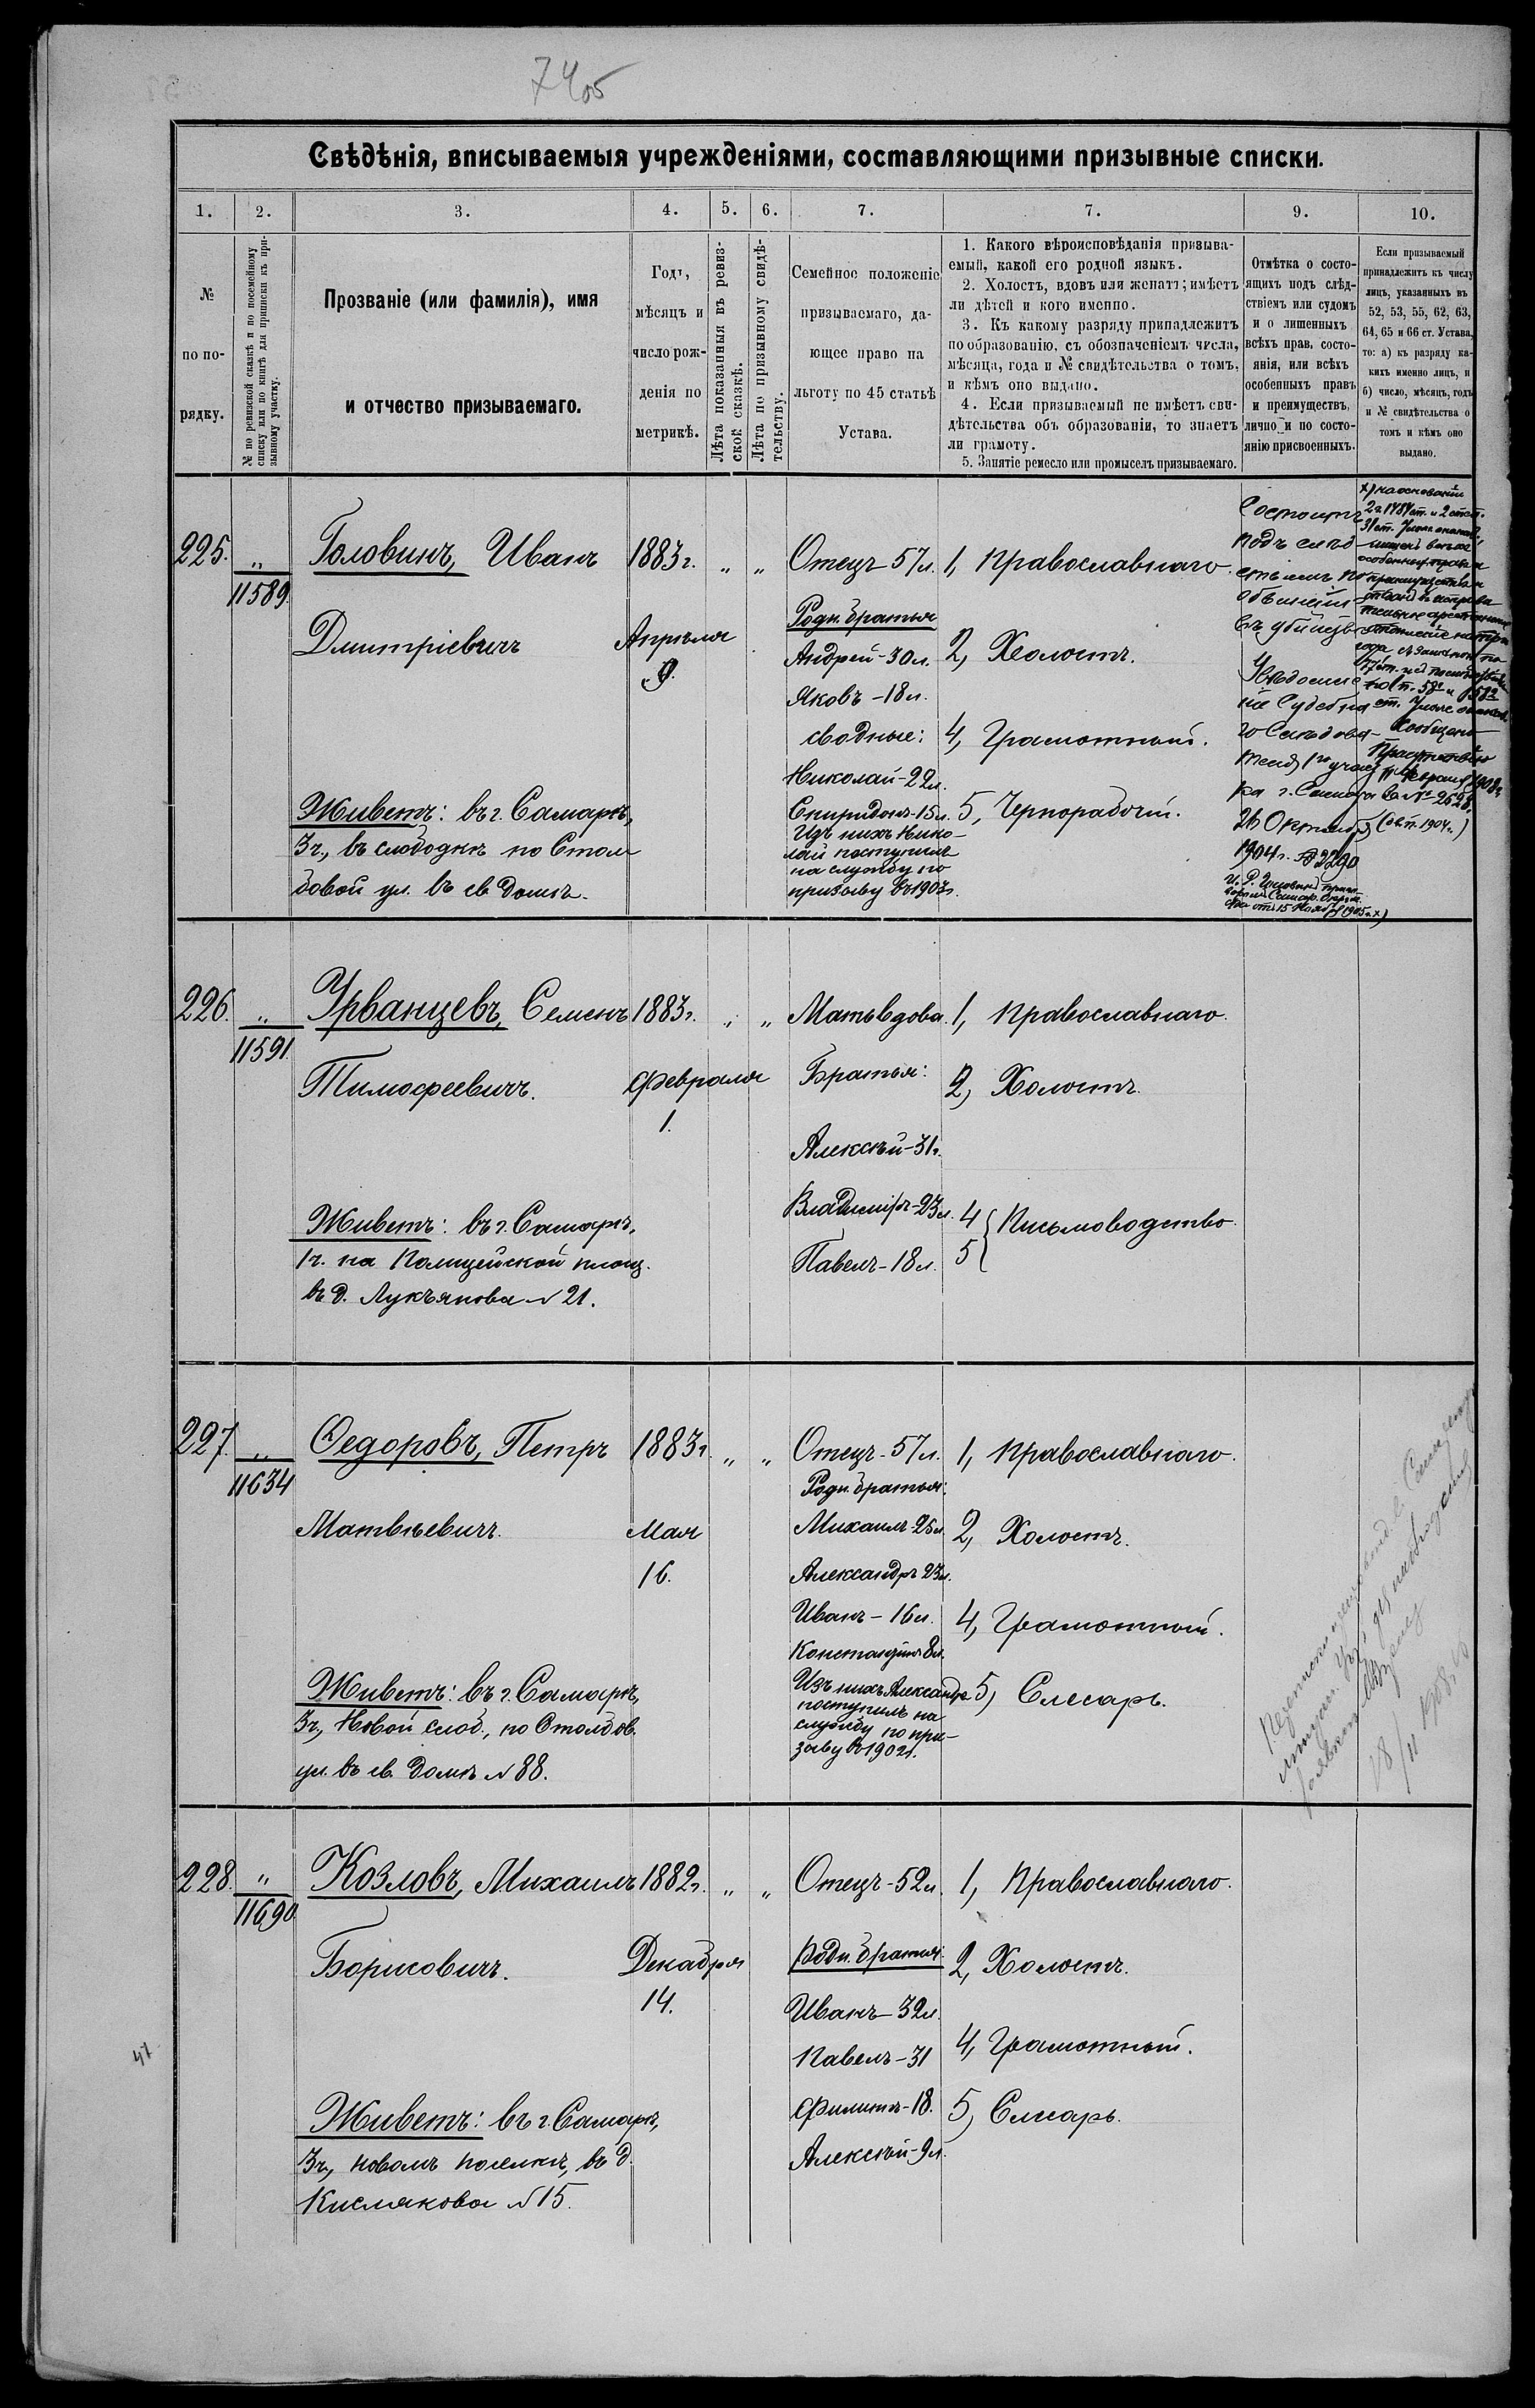 74об
Свѣдѣнія, вписываемыя учрежденіями, составляющими призывные списки.
1. 2. 3. 4. 5. 6. 7. 7. 9. 10.
№
по по-
рядку.
№ по ревизской сказкѣ и по посемейному
списку или по книгѣ для приписки къ при-
зывному участку.
Прозваніе (или фамилія), имя
и отчество призываемаго.
Годъ,
мѣсяцъ и
число рож-
денія по
метрикѣ.
Лѣта показанныя въ ревиз-
ской сказкѣ.
Лѣта по призывному свидѣ-
тельству.
Семейное положеніе
призываемаго, да-
ющее право на
льготу по 45 статьѣ
Устава.
1. Какого вѣроисповѣданія призыва-
емый, какой его родной языкъ.
2. Холостъ, вдовъ или женатъ; имѣетъ
ли дѣтей и кого именно.
3. Къ какому разряду принадлежитъ
по образованію, съ обозначеніемъ числа,
мѣсяца, года и № свидѣтельства о томъ,
и кѣмъ оно выдано.
4. Если призываемый не имѣетъ сви-
дѣтельства объ образованіи, то знаетъ
ли грамоту.
5. Занятіе ремесло или промыселъ призываемаго.
Отмѣтка о состо-
ящихъ подъ слѣд-
ствіемъ или судомъ
и о лишенныхъ
всѣхъ прав, состо-
янія, или всѣхъ
особенныхъ правъ
и преимуществъ,
лично и по состо-
янію присвоенныхъ.
Если призываемый
принадлежитъ къ числу
лицъ, указанныхъ въ
52, 53, 55, 62, 63,
64, 65 и 66 ст. Устава,
то: а) къ разряду ка-
кихъ именно лицъ, и
б) число, мѣсяцъ, годъ
и № свидѣтельства о
томъ и кѣмъ оно
выдано.
225. „
11589.
Головинъ, Иванъ
Дмитріевичъ
Живетъ: въ г. Самарѣ,
3 ч., въ слободкѣ по Стол-
бовой ул. въ св. домѣ.
1883 г.
Апрѣля
9.
„ „
Отецъ-57 л.
Родн. братья
Андрей-30 л.
Яковъ-18 л.
сводные:
Николай-22 л.
Спиридонъ-15 л.
Изъ нихъ Нико-
лай поступилъ
на службу по
призыву въ 1903 г.
1, Православнаго.
2, Холостъ.
4, Грамотный.
5, Чернорабочій.
Состоитъ
подъ слѣд-
ствіемъ по
обвинен.
въ убійств
Увѣдомле-
ніе Судебна-
го Слѣдова-
теля 1го участ-
ка г. Самара
26 Октября
1904 г. № 2290
х) на основаніи
особенныхъ правъ
Сообщено
Февраля 1908 г.
за № 2628
226. „
11591.
Урванцевъ, Семенъ
Тимофеевичъ.
Живетъ: въ г. Самарѣ,
1 ч. на Полицейской площ.
въ д. Лукъянова № 21.
1883 г.
Февраля
1.
„ „
Мать вдова.
Братья:
Алексѣй-31 г.
Владиміръ-23 л.
Павелъ-18 л.
1, Православнаго.
2, Холостъ.
4
5 } Письмоводство.
227. „
11634
Федоровъ, Петръ
Матвѣевичъ.
Живетъ: въ г. Самарѣ,
3 ч., Новой слоб., по Столбов.
ул. въ св. домѣ № 88.
1883 г.
Мая
16.
„ „
Отецъ-57 л.
Родн. братья:
Михаилъ-25 л.
Александръ 23 л.
Иванъ-16 л.
Константинъ 8 л.
Изъ нихъ Александръ
поступилъ на
службу по при-
зыву въ 1902 г.
1, Православнаго.
2, Холостъ.
4, Грамотный.
5, Слесарь.
18/11 1908 г.
228. „
11690
Козловъ, Михаилъ
Борисовичъ.
Живетъ: въ г. Самарѣ,
3 ч., новомъ поселкѣ, въ д.
Кислякова № 15.
1882 г.
Декабря
14.
„ „
Отецъ-52 л.
Родн. братья:
Иванъ-32 л.
Павелъ-31
Филиппъ-18.
Алексѣй-9 л.
1, Православнаго.
2, Холостъ.
4, Грамотный.
5, Слесарь.
47